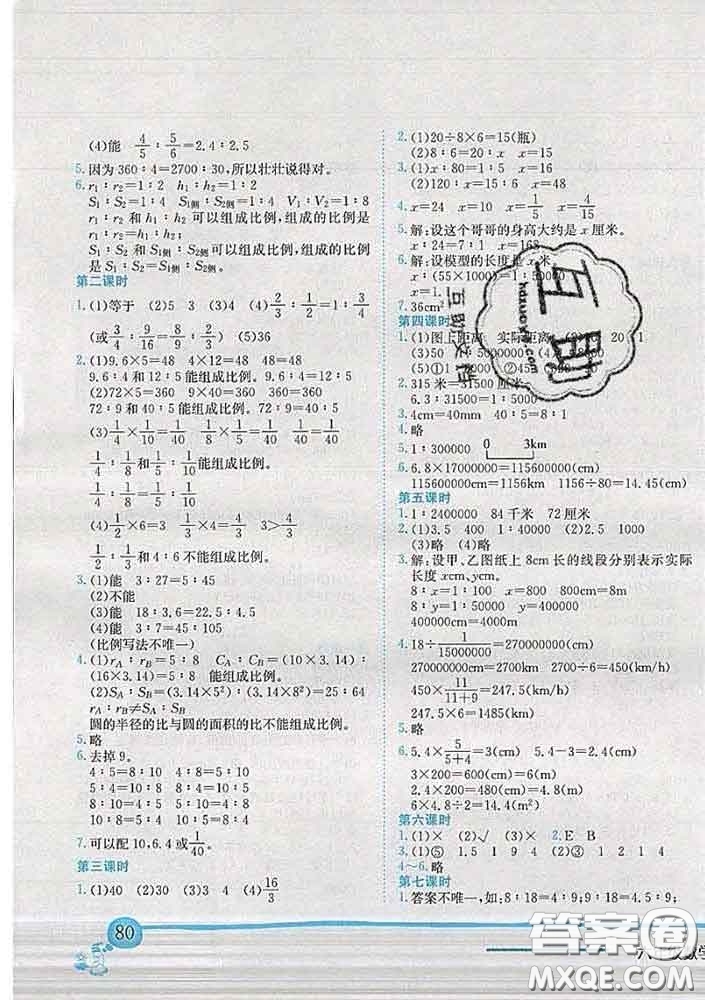 (4)能 4/5∶5/6=2.4∶2.5
5.因为360∶4=2700∶30,所以壮壮说得对。
6.r₁∶r₂=1∶2 h₁∶h₂=1∶2
S₁∶S₂=1∶4 S₁侧∶S₂侧=1∶4 V₁∶V₂=1∶8
r₁∶r₂和h₁∶h₂可以组成比例,组成的比例是
r₁∶r₂=h₁∶h₂。
S₁∶S₂和S₁侧∶S₂侧可以组成比例,组成的比例
是S₁∶S₂=S₁侧∶S₂侧。
第二课时
1.(1)等于 (2)5 3 (3)4 (4)2/3∶1/2=1∶3/4
(或3/4∶9/16=8/9∶2/3) (5)36
2.(1)9.6×5=48 4×12=48 48=48
9.6∶4和12∶5能组成比例。9.6∶4=12∶5
(2)72×5=360 9×40=360 360=360
72∶9和40∶5能组成比例。72∶9=40∶5
(3)1/4×1/10=1/40 1/8×1/5=1/40 1/40=1/40
1/4∶1/8和1/5∶1/10能组成比例。
1/4∶1/8=1/5∶1/10
(4)1/2×6=3 1/3×4=4/3 3>4/3
1/2∶1/3和4∶6不能组成比例。
3.(1)能 3∶27=5∶45
(2)不能
(3)能 18∶3.6=22.5∶4.5
(4)能 4∶7=45∶105
(比例写法不唯一)
4.(1)r_A∶r_B=5∶8 C_A∶C_B=(10×3.14)∶
(16×3.14)=5∶8 能组成比例。
(2)S_A∶S_B=(3.14×5²)∶(3.14×8²)=25∶64
r_A∶r_B≠S_A∶S_B
圆的半径的比与圆的面积的比不能组成比例。
5.略
6.去掉9。
4∶5=8∶10 5∶4=10∶8
4∶8=5∶10 8∶4=10∶5
8∶10=4∶5 10∶8=5∶4
5∶10=4∶8 10∶5=8∶4
7.可以配10,6.4或1/40。
第三课时
1.(1)40 (2)30 (3)8 9 (4)16/3
80
2.(1)20÷8×6=15(瓶)
(2)8∶6=20∶x x=15
3.(1)x∶80=1∶5 x=16
(2)120∶x=8∶1 x=15
4.x=24 x=10 x=1/5 x=4/5
5.解:设这个哥哥的身高大约是x厘米。
x∶24=7∶1 x=168
6.解:设模型的长度是x米。
x∶(55×1000)=1∶
x=1.
7.36cm²
第四课时
1.(1)图上距离 实际距离 (2) 20 1
(3)50 1∶5000000 (4)
(5)①1 20000000 ②450
2.315米=31500厘米
6.3∶31500=1∶5000
3.4cm=40mm 40∶5=8∶1
4.略
5.1∶300000 0 3km
6.6.8×17000000=115600000(cm)
115600000cm=1156km 1156÷80=14.45(cm)
第五课时
1.1∶2400000 84千米 72厘米
2.(1)3.5 400 1∶40000 (2)2.5 1000
(3)略 (4)略
3.解:设甲、乙图纸上8cm长的线段分别表示实际
长度xcm,ycm。
8∶x=1∶100 x=800 800cm=8m
8∶y=1∶50000 y=400000
400000cm=4000m
4.18÷1/15000000=270000000(cm)
270000000cm=2700km 2700÷6=450(km)
450×11/(11+9)=247.5(km)
247.5×6=1485(km)
5.略
6.5.4×5/(5+4)=3(cm) 5.4-3=2.4(cm)
3×200=600(cm)=6(m)
2.4×200=480(cm)=4.8(m)
6×4.8÷2=14.4(m²)
第六课时
1.(1)× (2)√ (3)× 2.E B
3.(1)⑤ 1.5 1 9 4 (2)③ 1 2 1 4
4~6.略
第七课时
1.答案不唯一,如:8∶18=4∶9;9∶18=4.5∶9;
互助
互助文档
答案圈
MXQE.COM